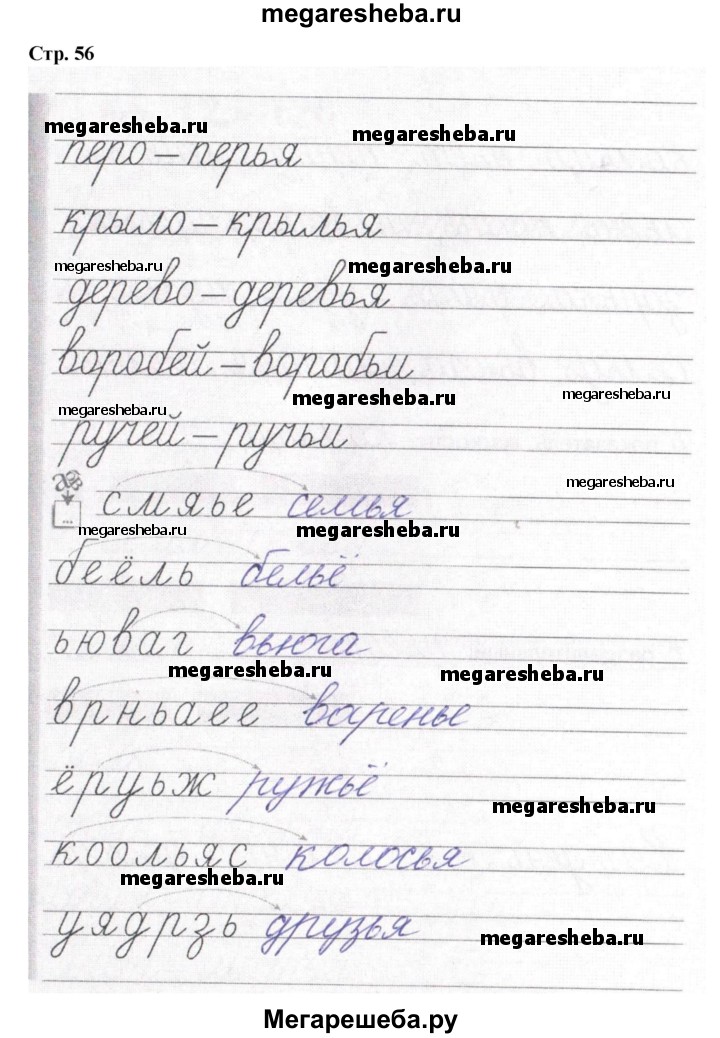 megaresheba.ru
Стр. 56
megaresheba.ru megaresheba.ru
перо – перья
крыло – крылья
megaresheba.ru megaresheba.ru
дерево – деревья
воробей – воробьи
megaresheba.ru megaresheba.ru
megaresheba.ru
ручей – ручьи
megaresheba.ru
...
смяье семья
megaresheba.ru megaresheba.ru
беёль бельё
ьюваг вьюга
megaresheba.ru megaresheba.ru
врньаее варенье
ёруьж ружьё
megaresheba.ru
коольяс колосья
megaresheba.ru
уядрзь друзья
megaresheba.ru
Мегарешеба.ру